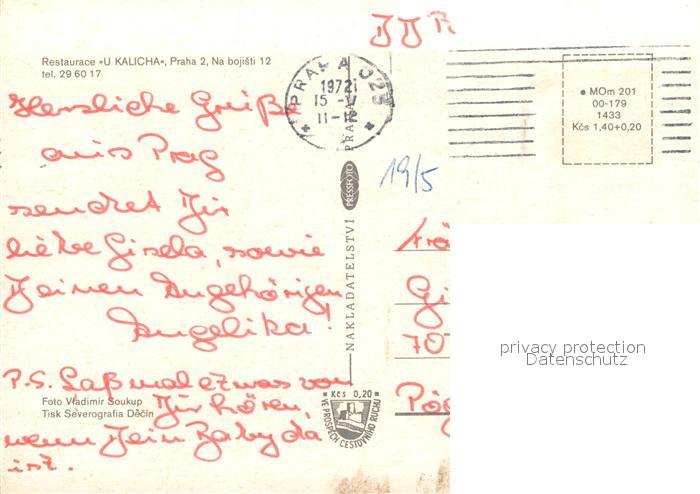 DDR
Restaurace »U KALICHA«, Praha 2, Na bojišti 12
tel. 29 60 17
PRAHA 025
1972
15 -V
11-
● MOm 201
00-179
1433
Kčs 1,40+0,20
Herzliche Grüße
aus Prag
sendet Dir
liebe Gisela, sowie
Deinen Angehörigen
Angelika!
P.S. Laß mal etwas von
Dir hören,
wenn Dein Baby da
ist.
Foto Vladimír Soukup
Tisk Severografia Děčín
NAKLADATELSTVÍ PRESSFOTO PRAHA
19/5
Kčs 0,20
VE PROSPĚCH CESTOVNÍHO RUCHU
Gi
70
privacy protection
Datenschutz